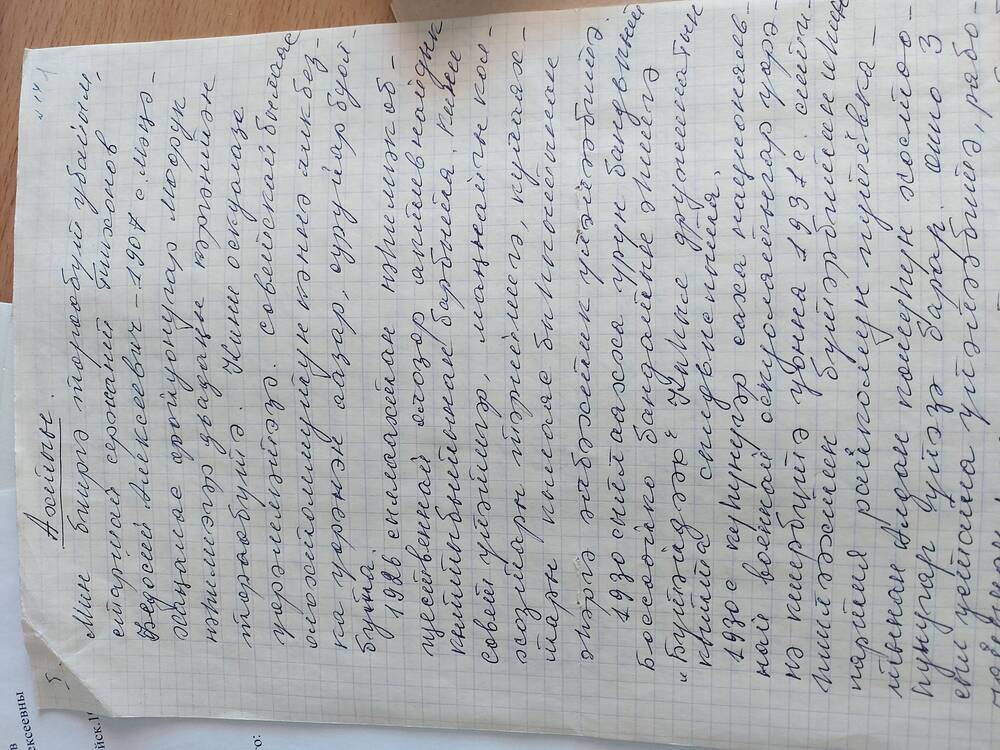 в
ексеевны
йск.19
го:
5.
№ 14 1
Ахтыы.
Мин бииргэ төрөөбүт убайым,
старшай сержант Тихонов
Федосий Алексеевич – 1907 с. Мэҥэ-
хаҥалас оройуонугар Моорук
нэһилиэгэр дьадаҥы кэргэнтэн
төрөөбүтэ. Кини оскуолаҕа
үөрэммэтэҕэ. Советскай былаас
олохтоммутун кэннэ ликбез-
ка үөрэнэн ааҕар, суруйар буол-
бута.
1926 сыллаахтан нэһилиэк об-
щественнай олоҕор активнайдык
кыттыбытынан барбыта. Кини
совет үлэтигэр, маҥнайгы кол-
хозтары тэрийиигэ, кулаах-
тары кылаас быһыытынан
эһэргэ элбэхтик үлэлээбитэ.
1930 сыллаахха үрүҥ бандьыыт
Боссоойко бандатын эһиигэ
„Бүтэйдээх" Кыһыл дружинатын
кытта сылдьыспыта.
1930 с күһүнүгэр саха националь-
най военнай оскуолатыгар үөрэ-
нэ киирбитэ уонна 1931 с. сити-
һиилээхтик бүтэрбитин иһин
партия райкомун путёвка-
тынан Алдан көмүһүн хостоо-
һунугар үлэҕэ барар. Онно 3
сыл устата үлэлээбитэ, рабо-